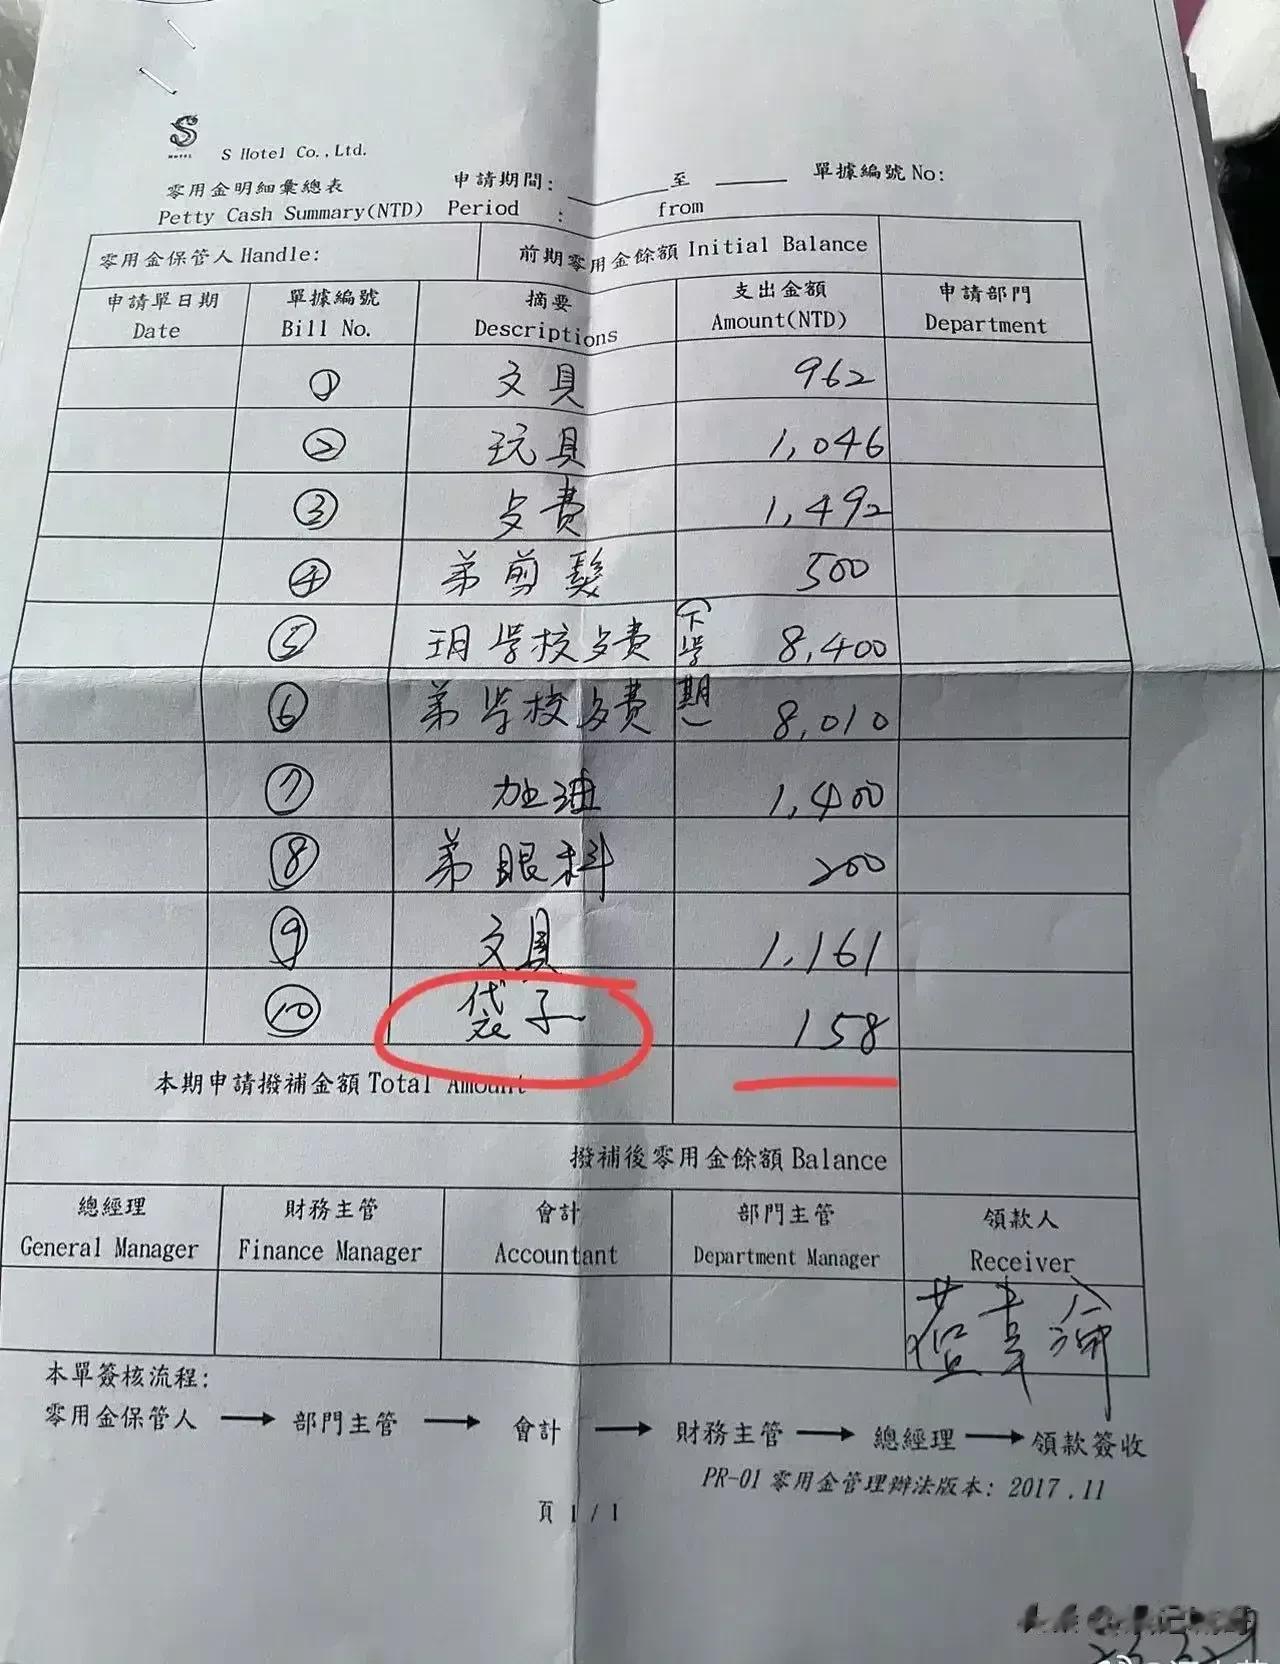 S
HOTEL
S Hotel Co.,Ltd.
零用金明細彙總表 申請期間: 至 單據編號 No:
Petty Cash Summary(NTD) Period : from
零用金保管人 Handle: 前期零用金餘額 Initial Balance
申請單日期 單據編號 摘要 支出金額 申請部門
Date Bill No. Descriptions Amount(NTD) Department
① 文具 962
② 玩具 1,046
③ 皮費 1,492
④ 弟剪髮 500
⑤ 玥學校皮費 (下學期) 8,400
⑥ 弟學校皮費 8,010
⑦ 加油 1,400
⑧ 弟眼科 200
⑨ 文具 1,161
⑩ 袋子 158
本期申請撥補金額 Total Amount
撥補後零用金餘額 Balance
總經理 財務主管 會計 部門主管 領款人
General Manager Finance Manager Accountant Department Manager Receiver
本單簽核流程:
零用金保管人 → 部門主管 → 會計 → 財務主管 → 總經理 → 領款簽收
PR-01 零用金管理辦法版本: 2017.11
頁 1 / 1